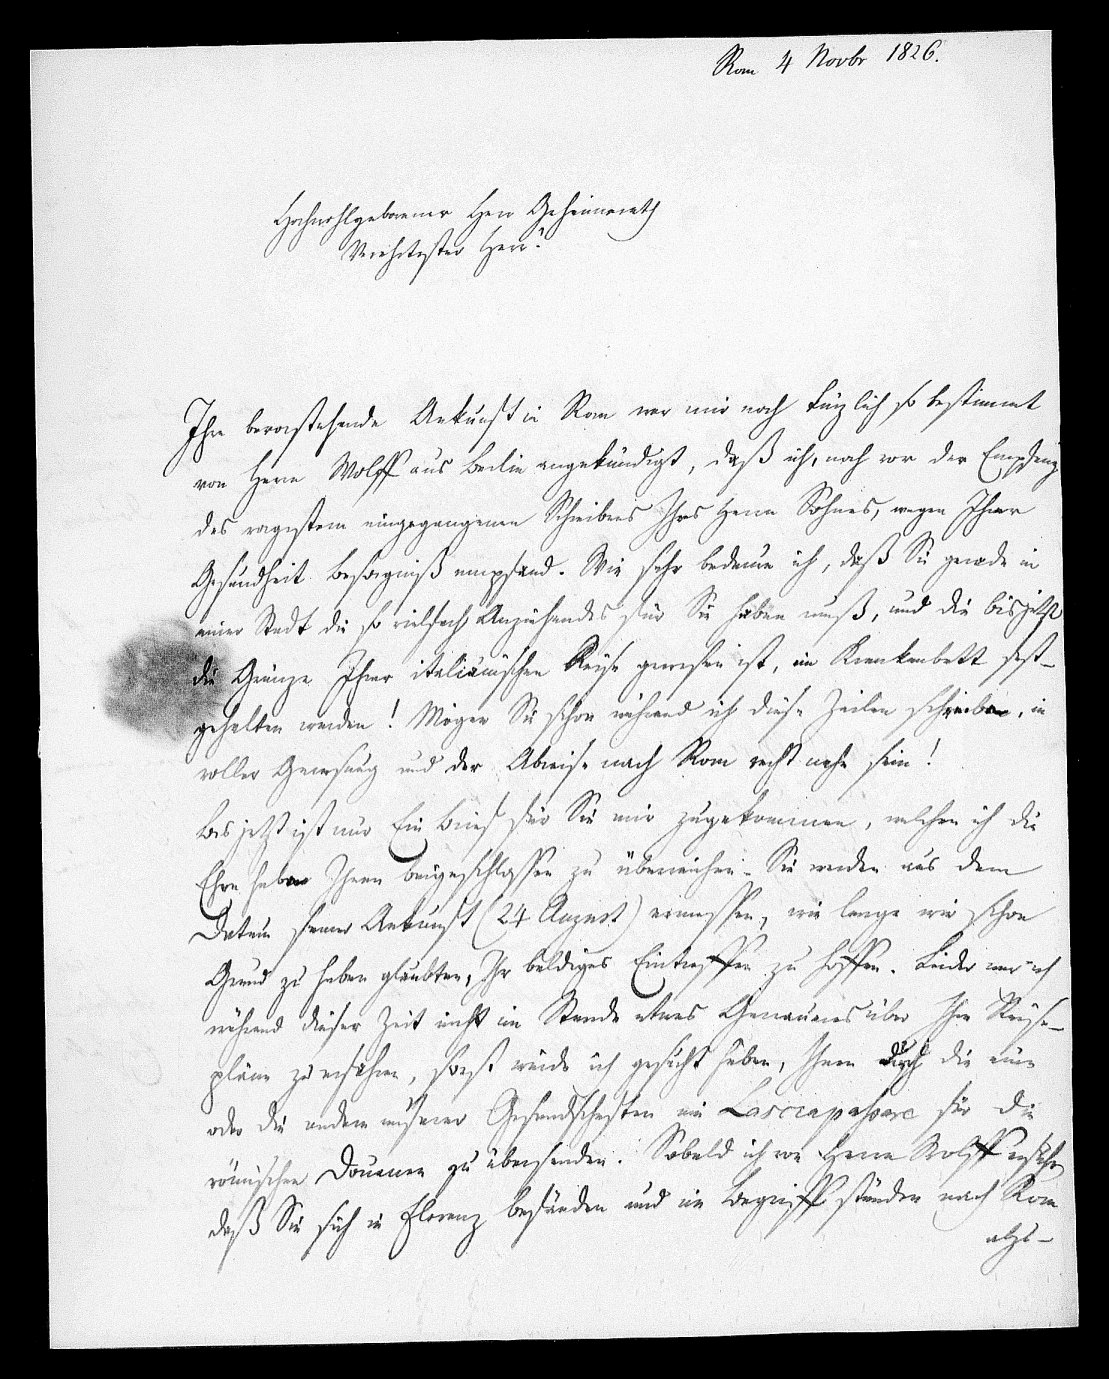 Rom 4 Novbr 1826.
Hochwohlgeborener Herr Geheimerath
Verehrtester Herr!
Ihre bevorstehende Ankunft in Rom war mir noch kürzlich so bestimmt
von Herrn Wolff aus Berlin angekündigt, daß ich, noch vor dem Empfang
des vorgestern eingegangenen Schreibens Ihres Herrn Sohnes, wegen Ihrer
Gesundheit Besorgniß empfand. Wie sehr bedaure ich, daß Sie gerade in
einer Stadt die so vielfach Anziehendes für Sie haben muß, und die bis jetzt
die Gränze Ihrer italiänischen Reise gewesen ist, im Krankenbett fest-
gehalten werden! Mögen Sie schon während ich diese Zeilen schreibe, in
voller Genesung und der Abreise nach Rom recht nahe sein!
Bis jetzt ist nur Ein Brief für Sie mir zugekommen, welchen ich die
Ehre habe Ihnen beigeschlossen zu überreichen. Sie werden aus dem
Datum seiner Ankunft (24 August) ermessen, wie lange wir schon
Grund zu haben glaubten, Ihr baldiges Eintreffen zu hoffen. Leider war ich
während dieser Zeit nicht im Stande etwas Genaueres über Ihre Reise-
pläne zu erfahren, sonst würde ich gesucht haben, Ihnen durch die eine
oder die andere unserer Gesandtschaften ein Lasciapassare für die
römischen Douanen zu übersenden. Sobald ich von Herrn Wolff erfuhr
daß Sie sich in Florenz befänden und im Begriff ständen nach Rom
abzu-